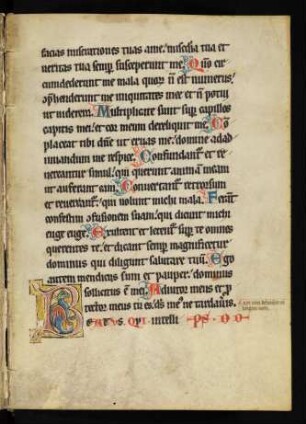 facias miserationes tuas a me. misc̄dia tua et
ueritas tua semꝑ susceperunt me. Qm̄ cir
cumdederunt me mala quoꝝ n̄ est numerus,
cōp̄henderunt me iniquitates mee et n̄ potui
ut uiderem. Multiplicate sunt suꝑ capillos
capitis mei, et cor meum dereliquit me. Cō
placeat tibi dn̄e ut eruas me, domine ad ad
iuuandum me respice. Confundant̄ et re
uereantur simul, qui querunt animā meam
ut auferant eam. Conuertant̄ retrorsum
et reuereant̄, qui uolunt michi mala. Ferant
confestim cōfusionem suam, qui dicunt michi
euge euge. Exultent et letent̄ suꝑ te omnes
querentes te, et dicant semꝑ magnificetur
dominus qui diligunt salutare tuū. Ego
autem mendicus sum et pauper, dominus
sollicitus ē mei. Adiutor meus et ꝓ
tector meus tu es, ds̄ ms̄ ne tardaueris.
BEATVS QVI intelli PS. D D